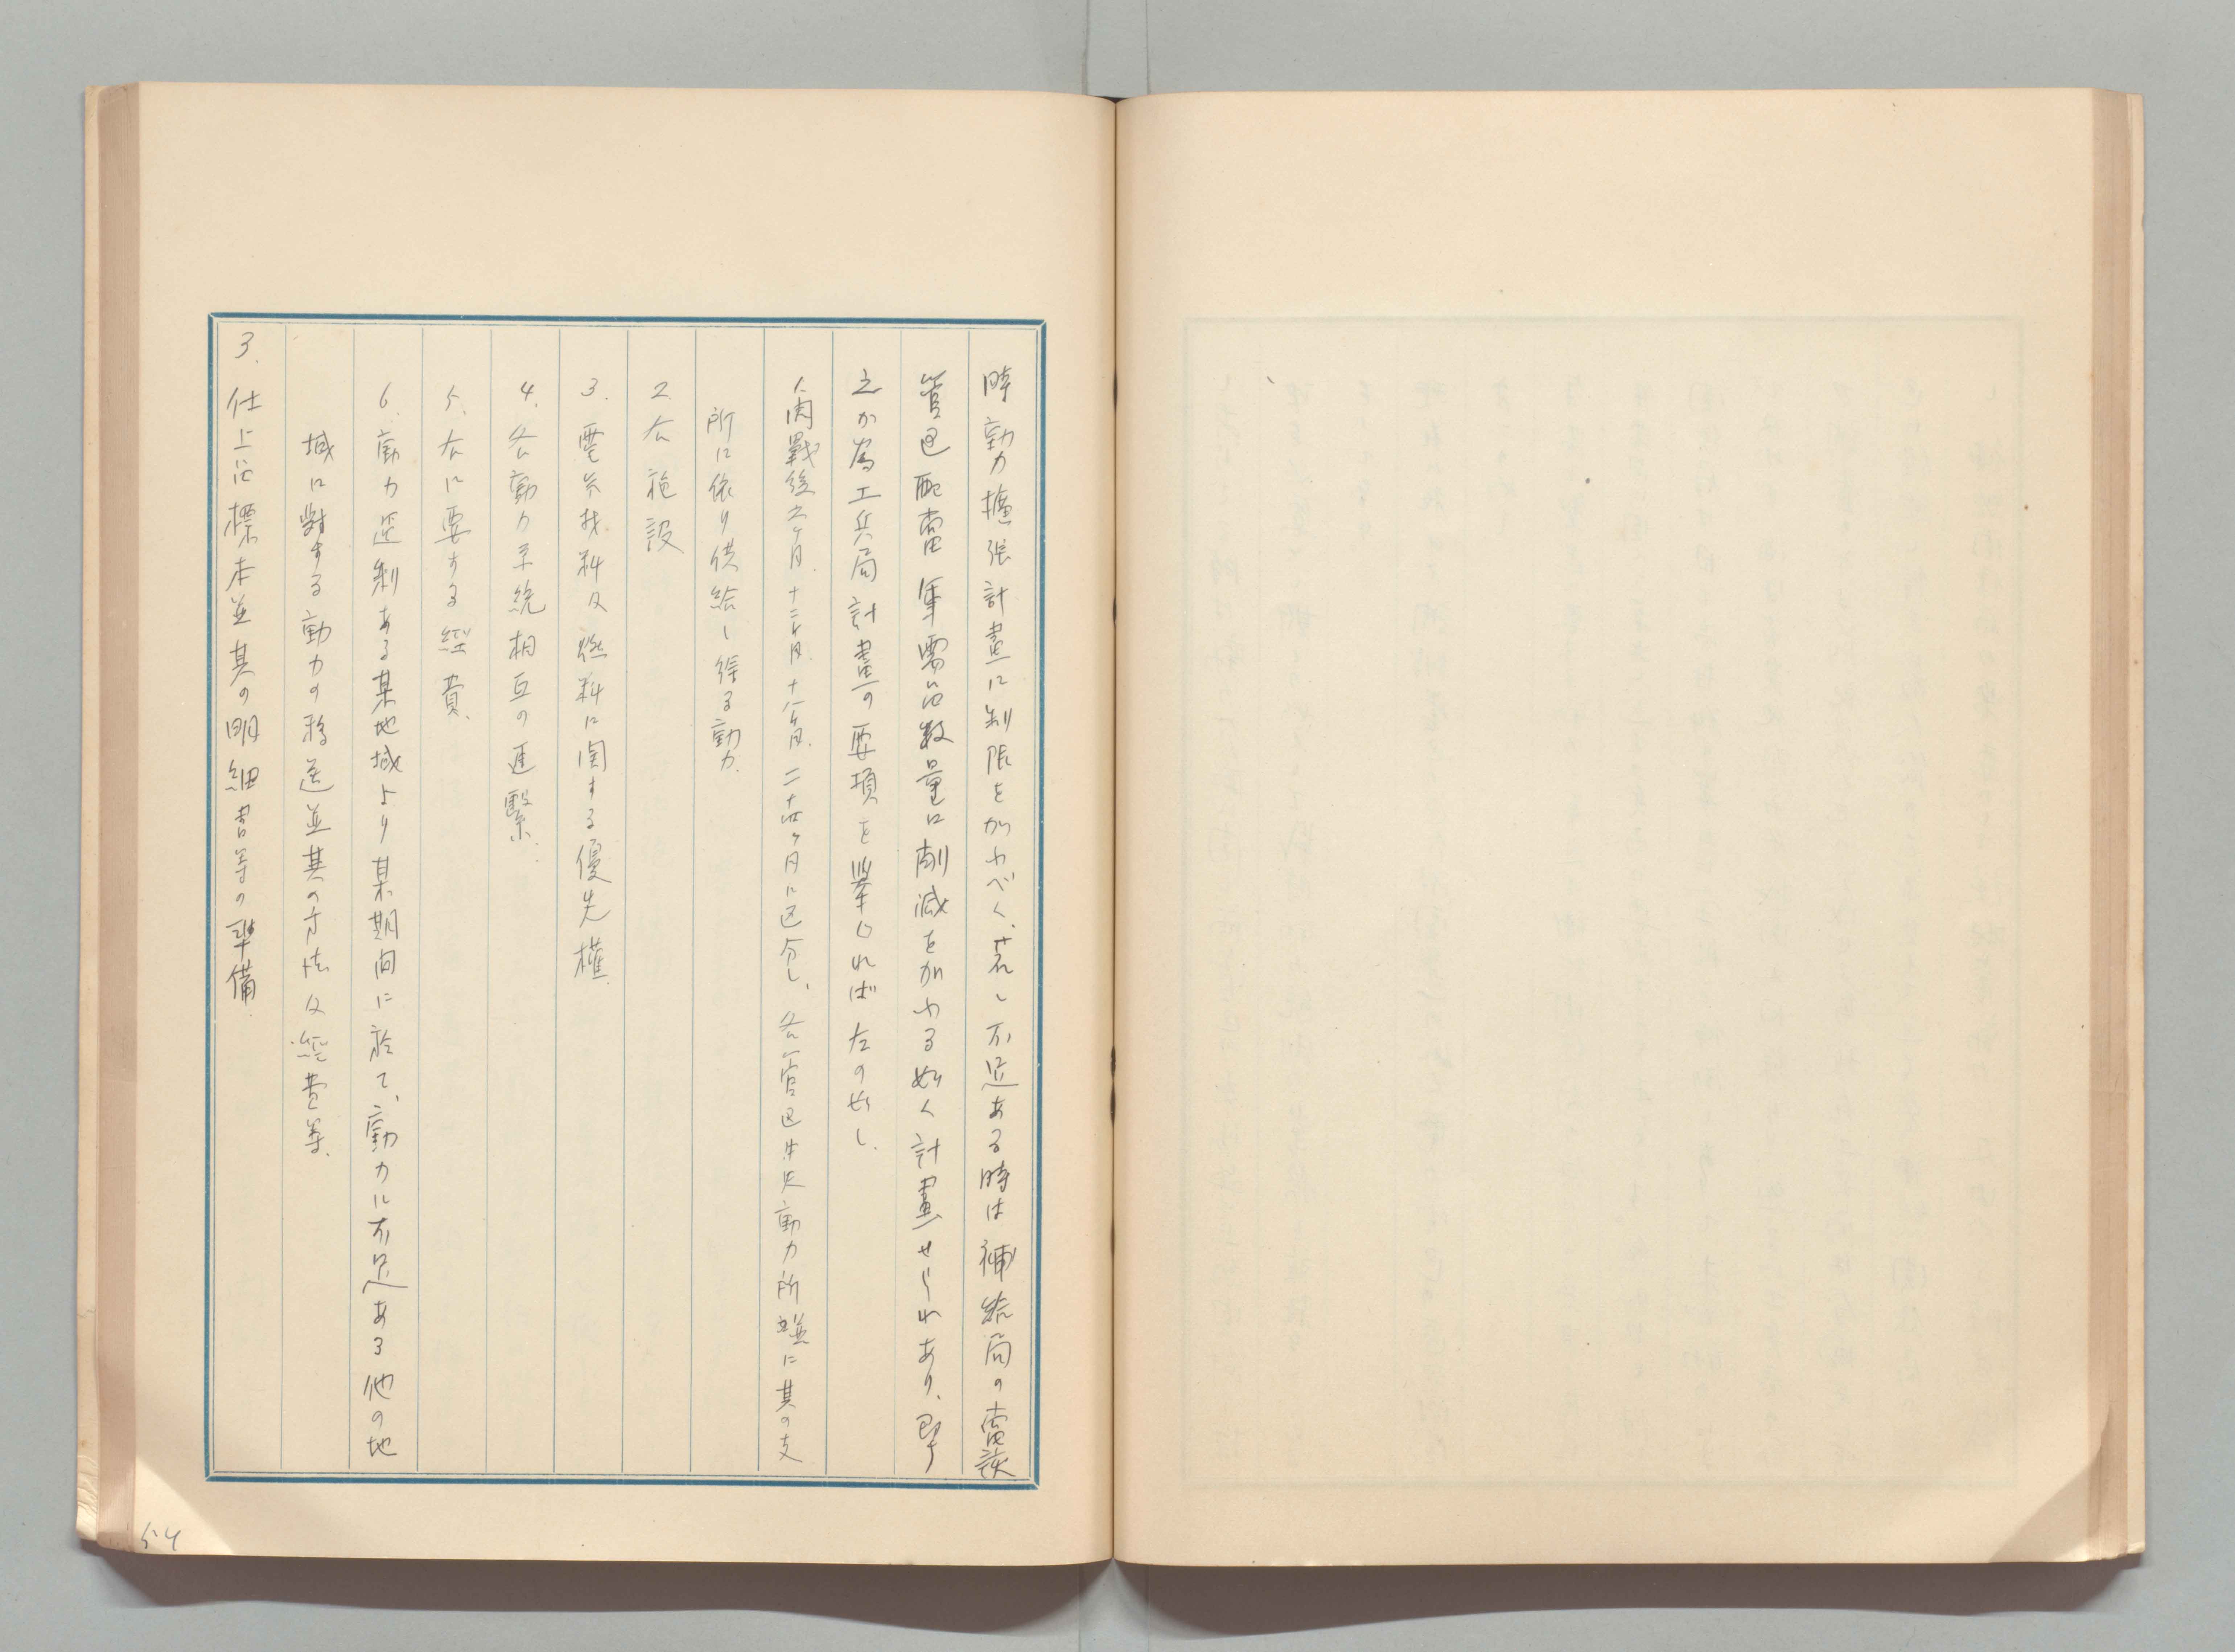 時動力擴張計畫に制限を加ふべく、若し不足ある時は補給局の當該
管區配當軍需品数量に削減を加ふる如く計畫せられあり、即
之が為工兵局計畫の要項を擧ぐれば左の如し、
1.開戰後六ケ月、十二ケ月、十八ケ月、二十四ケ月に区分し、各管區中央動力所並に其の支
所に依り供給し得る動力、
2.仝施設
3.電氣材料及燃料に関する優先權、
4.各動力系統相互の連繫、
5.右に要する経費、
6.動力過剰ある某地域より某期间に於て、動力に不足ある他の地
域に對する動力の移送並其の方法及経費等、
3.仕上記標本並其の明細書等の準備、
54